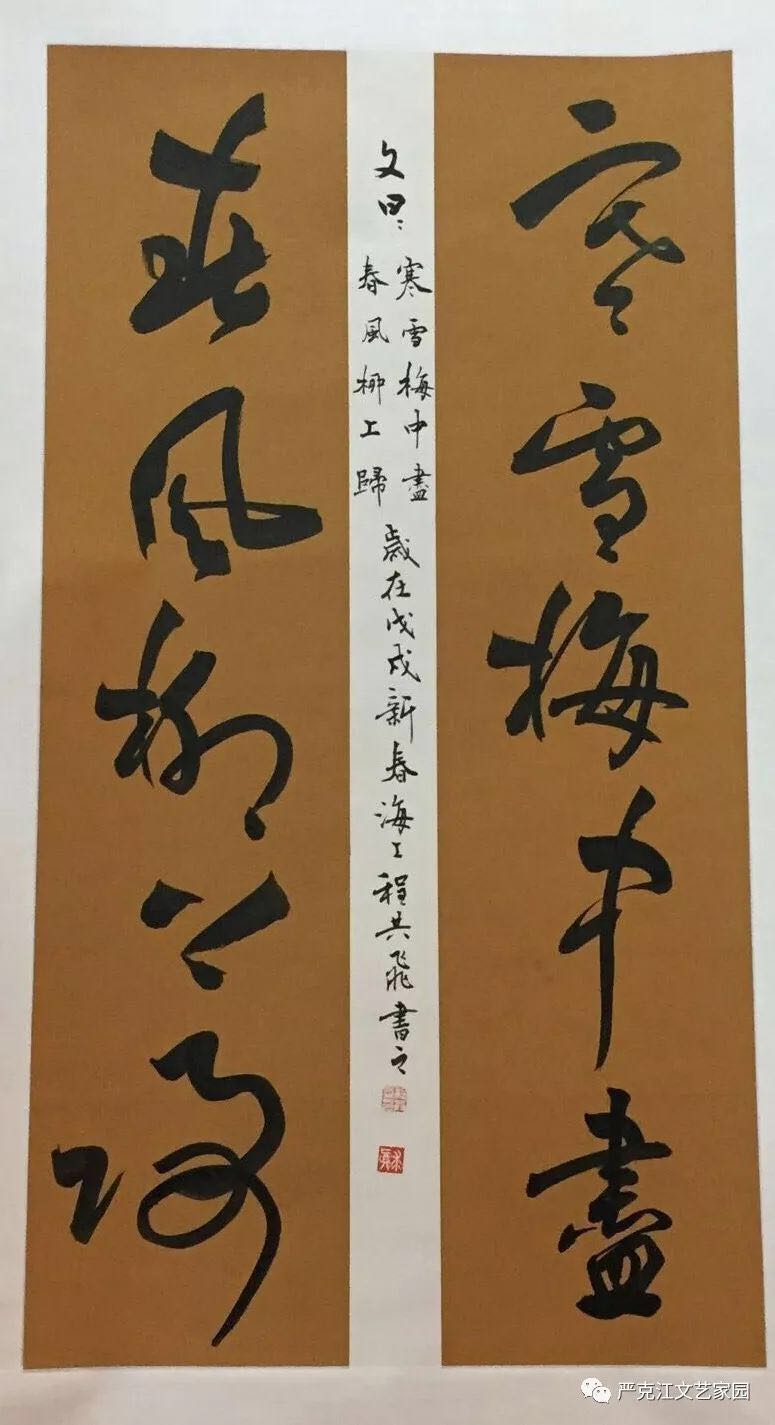 寒雪梅中盡
春風柳上歸
文曰：
寒雪梅中盡
春風柳上歸
歲在戊戌新春海上程共飛書之
严克江文艺家园